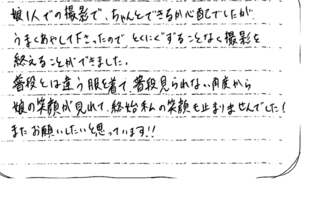 娘1人での撮影で、ちゃんとできるか心配でしたが
うまくあやして下さったので とくにぐずることなく撮影を
終えることができました。
普段とは違う服を着て、普段見られない角度から
娘の笑顔が見れて、終始私の笑顔も止まりませんでした!
またお願いしたいと思っています!!